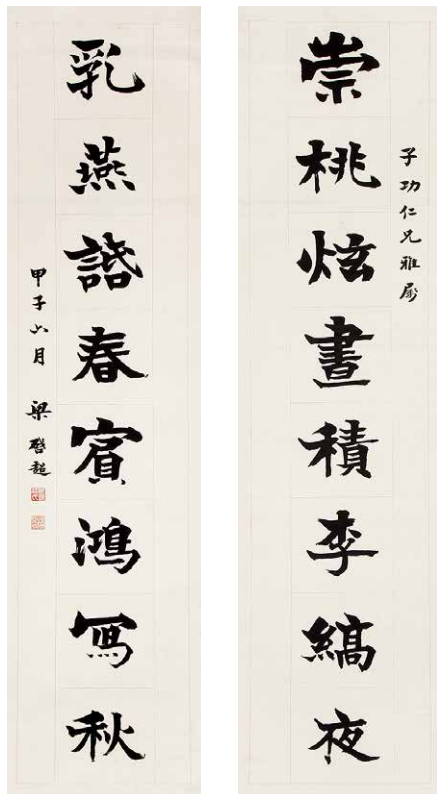 崇桃炫晝積李縞夜
子功仁兄雅屬
乳燕諧春賓鴻寫秋
甲子六月 梁啓超